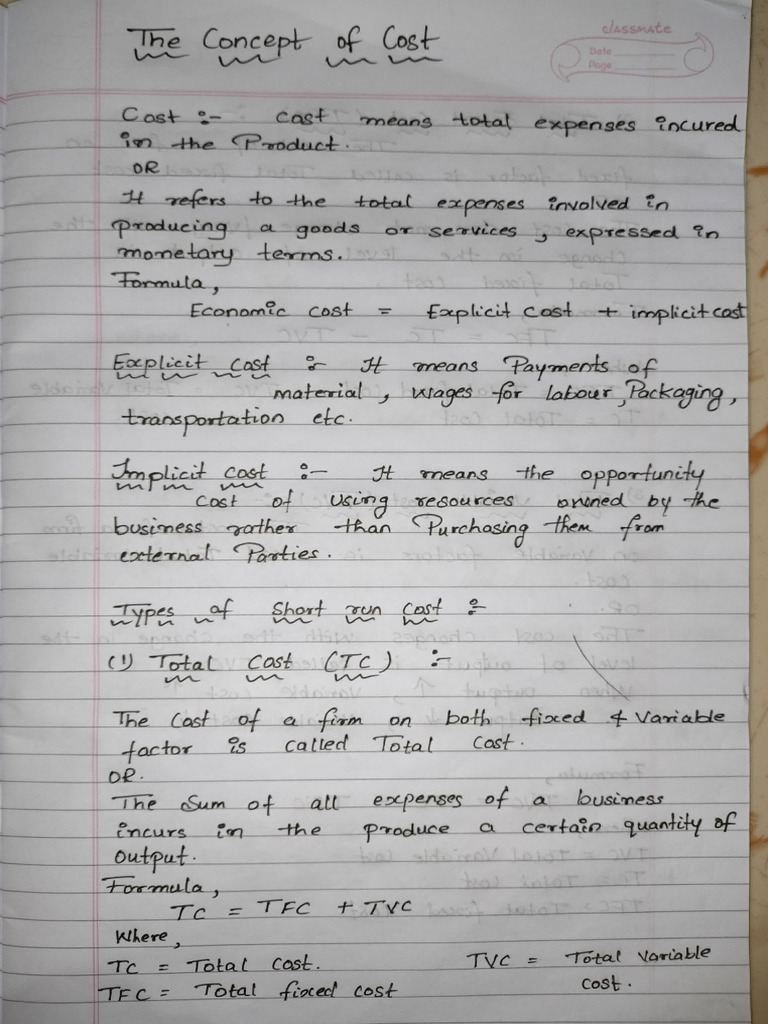 classmate
Date
Page
The Concept of Cost
Cost :- Cost means total expenses incured
in the Product.
OR
It refers to the total expenses involved in
producing a goods or services, expressed in
monetary terms.
Formula,
Economic cost = Explicit cost + implicit cost
Explicit cost :- It means Payments of
material, wages for labour, Packaging,
transportation etc.
Implicit cost :- It means the opportunity
cost of using resources owned by the
business rather than Purchasing them from
external Parties.
Types of Short run Cost :-
(1) Total Cost (TC) :-
The Cost of a firm on both fixed & Variable
factor is called Total Cost.
OR.
The Sum of all expenses of a business
incurs in the produce a certain quantity of
output.
Formula,
TC = TFC + TVC
Where,
TC = Total Cost. TVC = Total Variable
cost.
TFC = Total fixed cost